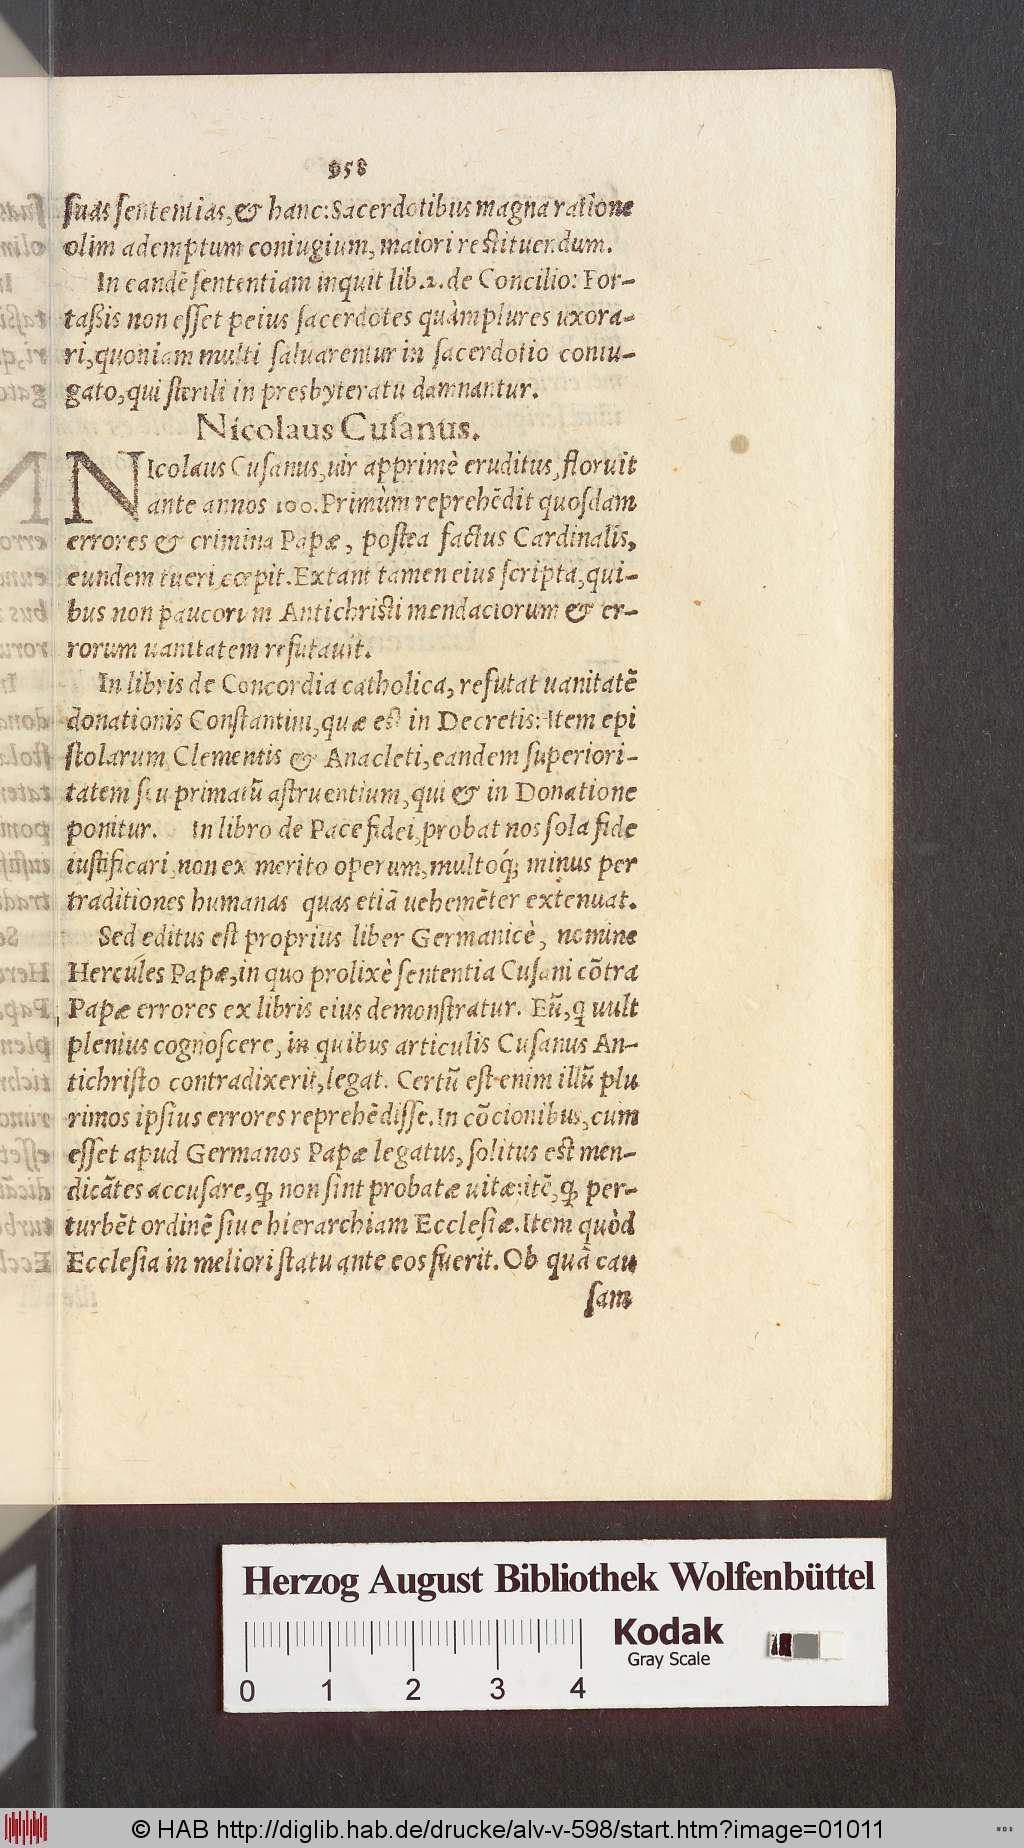 958
suas sententias, & hanc: Sacerdotibus magna ratione
olim ademptum coniugium, maiori restituendum.
In eandē sententiam inquit lib. 2. de Concilio: For-
taßis non esset peius sacerdotes quàmplures uxora-
ri, quoniam multi saluarentur in sacerdotio coniu-
gato, qui sterili in presbyteratu damnantur.
Nicolaus Cusanus.
NIcolaus Cusanus, uir apprimè eruditus, floruit
ante annos 100. Primùm reprehēdit quosdam
errores & crimina Papæ, postea factus Cardinalis,
eundem tueri cœpit. Extant tamen eius scripta, qui-
bus non paucorum Antichristi mendaciorum & er-
rorum uanitatem refutauit.
In libris de Concordia catholica, refutat uanitatē
donationis Constantini, quæ est in Decretis: Item epi
stolarum Clementis & Anacleti, eandem superiori-
tatem seu primatū astruentium, qui & in Donatione
ponitur. In libro de Pace fidei, probat nos sola fide
iustificari, non ex merito operum, multoq́; minus per
traditiones humanas quas etiā uehemēter extenuat.
Sed editus est proprius liber Germanicè, nomine
Hercules Papæ, in quo prolixè sententia Cusani cōtra
Papæ errores ex libris eius demonstratur. Eū, q uult
plenius cognoscere, in quibus articulis Cusanus An-
tichristo contradixerit, legat. Certū est enim illū plu
rimos ipsius errores reprehēdisse. In cōcionibus, cum
esset apud Germanos Papæ legatus, solitus est men-
dicātes accusare, q̨ non sint probatæ uitæ: itē, q̨ per-
turbēt ordinē siue hierarchiam Ecclesiæ. Item quòd
Ecclesia in meliori statu ante eos fuerit. Ob quā cau
sam
Herzog August Bibliothek Wolfenbüttel
Kodak
Gray Scale
0 1 2 3 4
© HAB http://diglib.hab.de/drucke/alv-v-598/start.htm?image=01011